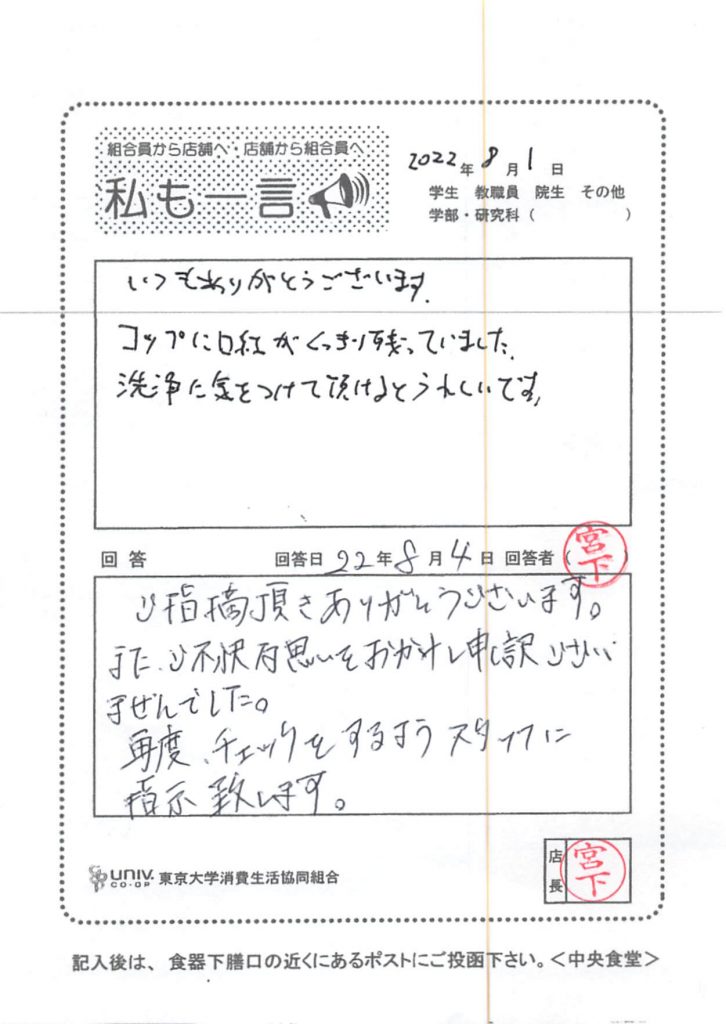 組合員から店舗へ・店舗から組合員へ
私も一言
2022年 8月1日
学生 教職員 院生 その他
学部・研究科（ ）
いつもありがとうございます。
コップに口紅がくっきり残っていました。
洗浄に気をつけて頂けるとうれしいです。
回答 回答日 22年8月4日 回答者（宮下）
ご指摘頂きありがとうございます。
また、ご不快な思いをおかけし申し訳ござい
ませんでした。
再度、チェックをするようスタッフに
指示致します。
UNIV. CO-OP 東京大学消費生活協同組合
店長 宮下
記入後は、食器下膳口の近くにあるポストにご投函下さい。＜中央食堂＞